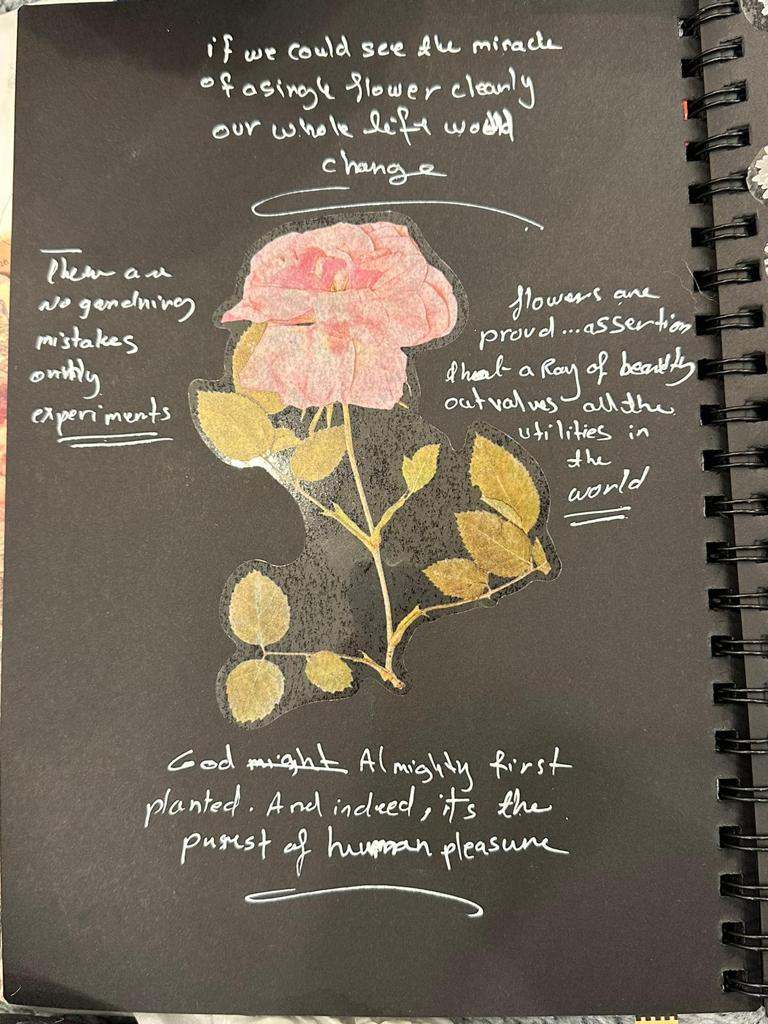 if we could see the miracle
of a single flower clearly
our whole life would
change
There are
no gendning
mistakes
only
experiments
flowers are
proud...assertion
that a Ray of beauty
outvalues all the
utilities in
the
world
God might Almighty first
planted. And indeed, it's the
purest of human pleasure